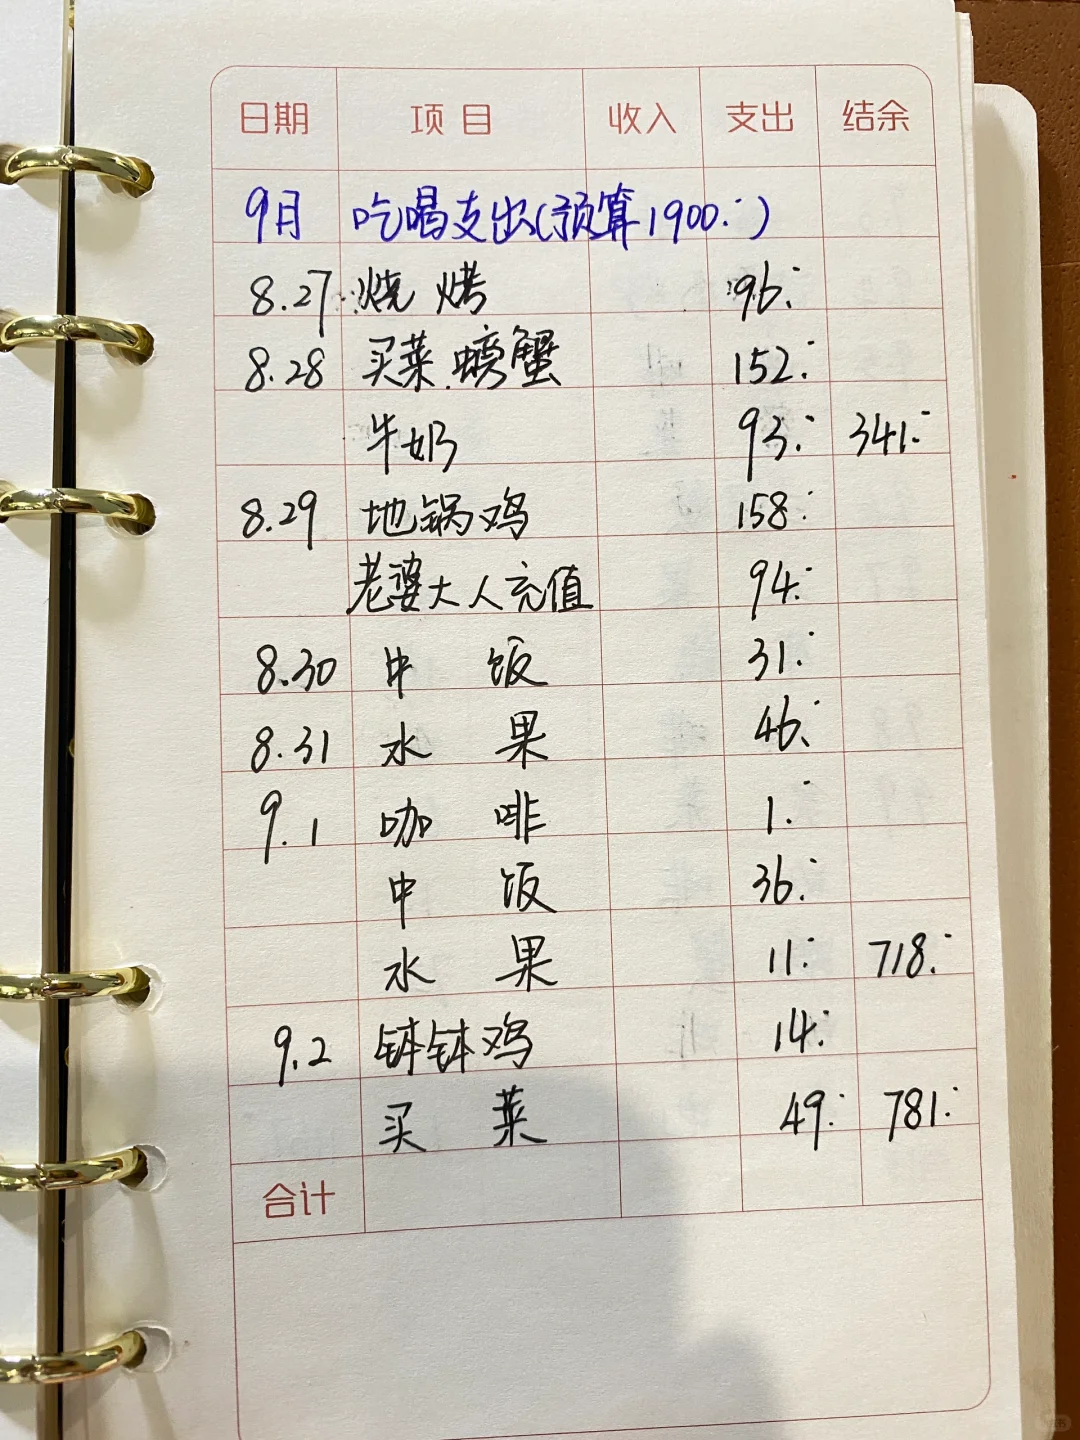 日期 项目 收入 支出 结余
9月 吃喝支出(预算1900.-)
8.27 烧烤 96.-
8.28 买菜.螃蟹 152.-
牛奶 93.- 341.-
8.29 地锅鸡 158.-
老婆大人充值 94.-
8.30 中饭 31.-
8.31 水果 46.-
9.1 咖啡 1.-
中饭 36.-
水果 11.- 718.-
9.2 钵钵鸡 14.-
买菜 49.- 781.-
合计